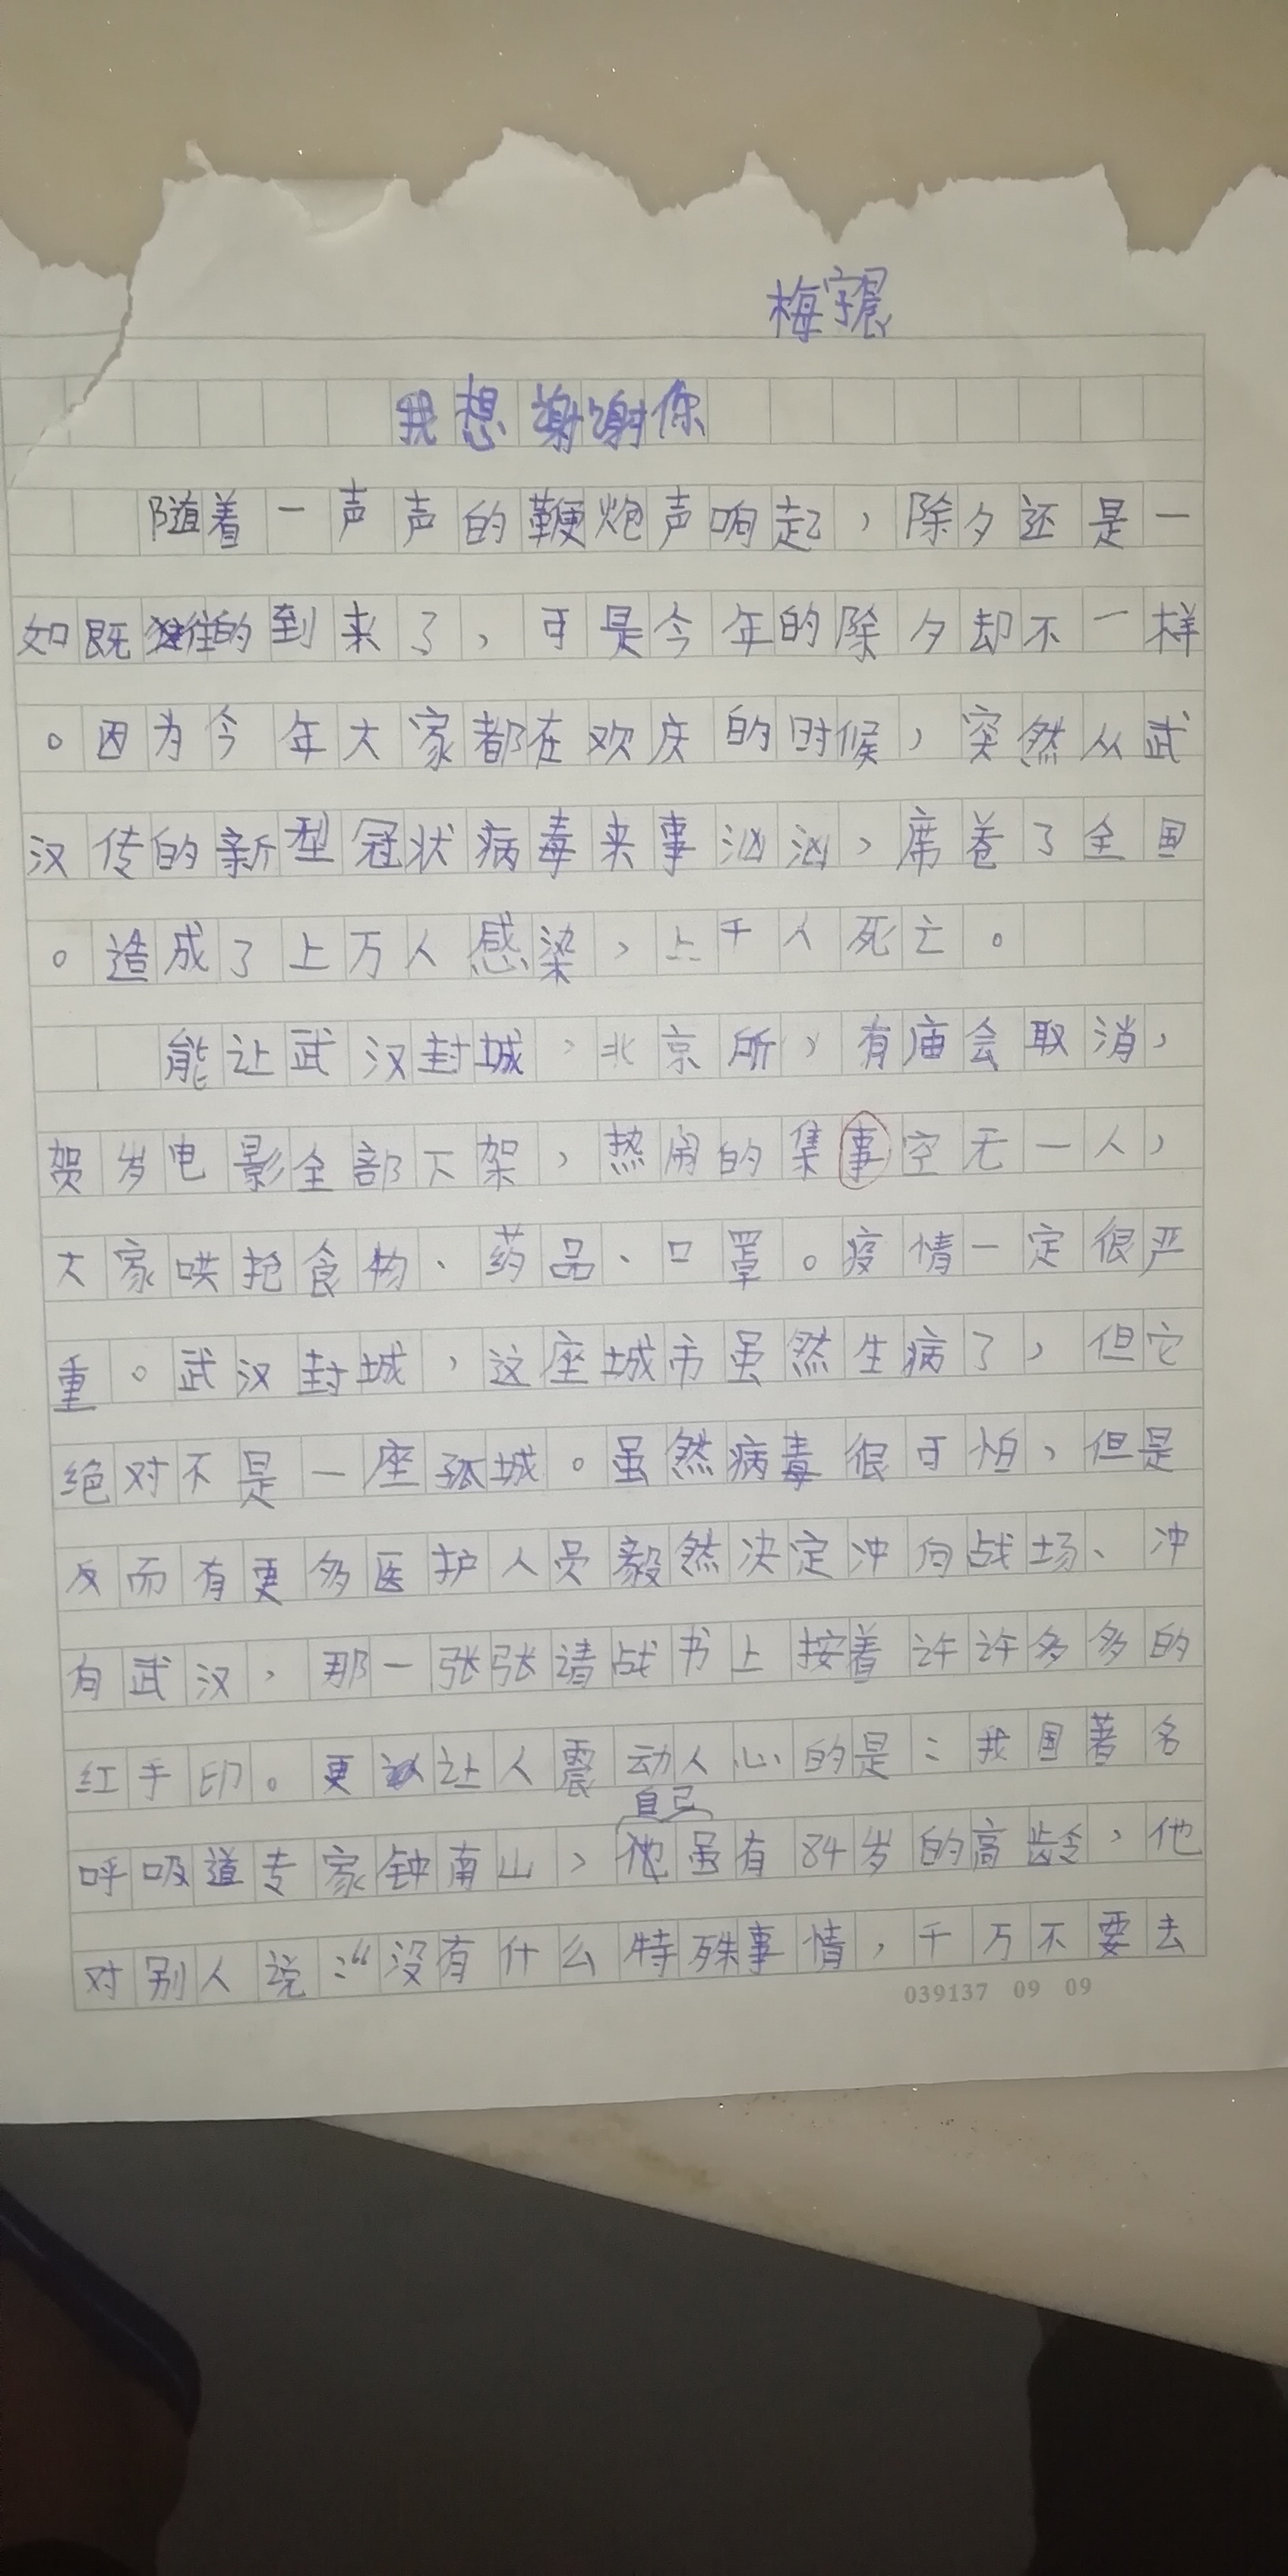 梅宇晨
我想谢谢你
随着一声声的鞭炮声响起，除夕还是一
如既往的到来了，可是今年的除夕却不一样
。因为今年大家都在欢庆的时候，突然从武
汉传的新型冠状病毒来事汹汹，席卷了全国
。造成了上万人感染，上千人死亡。
能让武汉封城，北京所，有庙会取消，
贺岁电影全部下架，热闹的集事空无一人，
大家哄抢食物、药品、口罩。疫情一定很严
重。武汉封城，这座城市虽然生病了，但它
绝对不是一座孤城。虽然病毒很可怕，但是
反而有更多医护人员毅然决定冲向战场、冲
向武汉，那一张张请战书上按着许许多多的
红手印。更让人震动人心的是：我国著名
呼吸道专家钟南山，他自己虽有84岁的高龄，他
对别人说：“没有什么特殊事情，千万不要去
039137 09 09